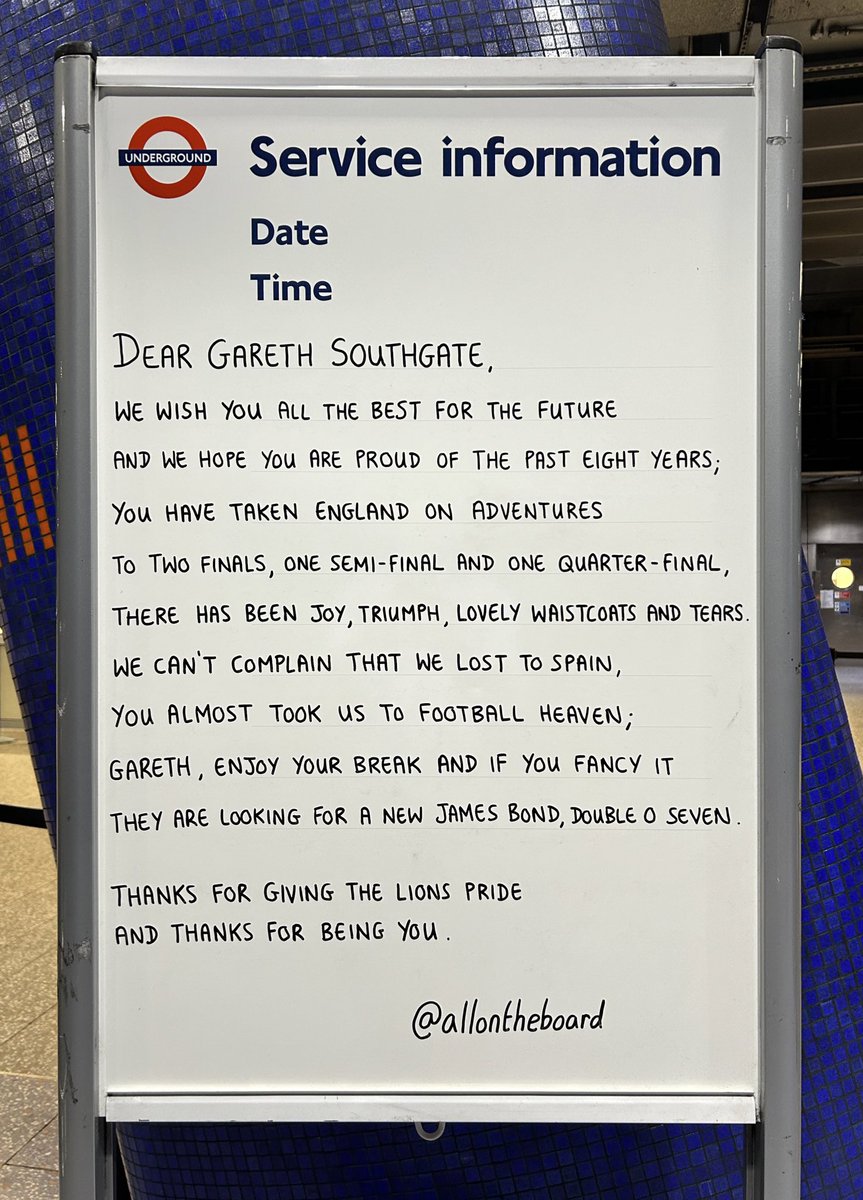 UNDERGROUND
Service information
Date
Time
DEAR GARETH SOUTHGATE,
WE WISH YOU ALL THE BEST FOR THE FUTURE
AND WE HOPE YOU ARE PROUD OF THE PAST EIGHT YEARS;
YOU HAVE TAKEN ENGLAND ON ADVENTURES
TO TWO FINALS, ONE SEMI-FINAL AND ONE QUARTER-FINAL,
THERE HAS BEEN JOY, TRIUMPH, LOVELY WAISTCOATS AND TEARS.
WE CAN'T COMPLAIN THAT WE LOST TO SPAIN,
YOU ALMOST TOOK US TO FOOTBALL HEAVEN;
GARETH, ENJOY YOUR BREAK AND IF YOU FANCY IT
THEY ARE LOOKING FOR A NEW JAMES BOND, DOUBLE O SEVEN.
THANKS FOR GIVING THE LIONS PRIDE
AND THANKS FOR BEING YOU.
@allontheboard